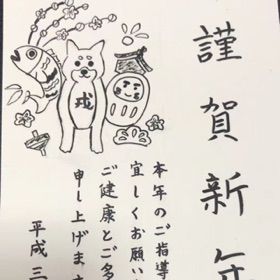 謹賀新年
本年のご指導
宜しくお願い
ご健康とご多
申し上げます
平成三
戌